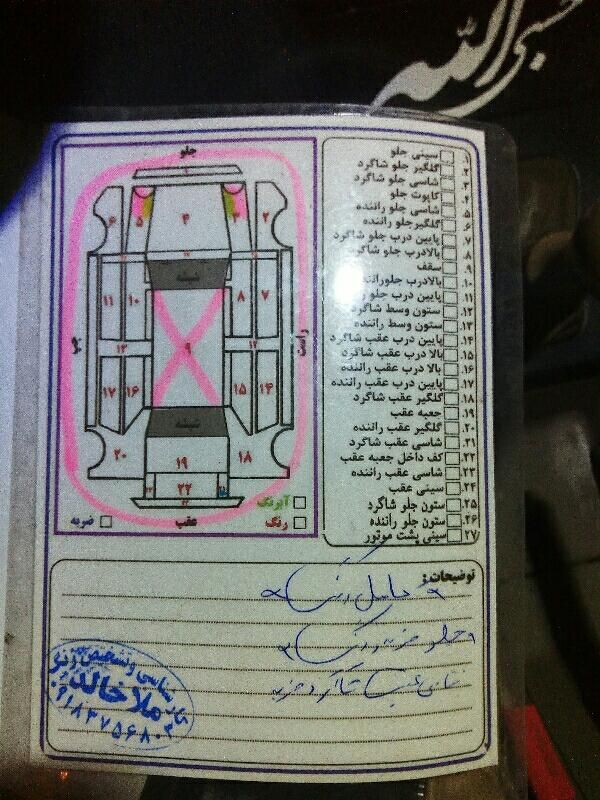 حسبی الله
جلو
۱
۲
۳
۴
۵
۶
۷
۸
۹
۱۰
۱۱
۱۲
۱۳
۱۴
۱۵
۱۶
۱۷
۱۸
۱۹
۲۰
۲۲
شیشه
شیشه
راست
چپ
عقب
آبرنگ
رنگ
ضربه
۱. سینی جلو
۲. گلگیر جلو شاگرد
۳. شاسی جلو شاگرد
۴. کاپوت جلو
۵. شاسی جلو راننده
۶. گلگیرجلو راننده
۷. پایین درب جلو شاگرد
۸. بالادرب جلو شاگرد
۹. سقف
۱۰. بالادرب جلوراننده
۱۱. پایین درب جلو
۱۲. ستون وسط شاگرد
۱۳. ستون وسط راننده
۱۴. پایین درب عقب شاگرد
۱۵. بالا درب عقب شاگرد
۱۶. بالا درب عقب راننده
۱۷. پایین درب عقب راننده
۱۸. گلگیر عقب شاگرد
۱۹. جعبه عقب
۲۰. گلگیر عقب راننده
۲۱. شاسی عقب شاگرد
۲۲. کف داخل جعبه عقب
۲۳. شاسی عقب راننده
۲۴. سینی عقب
۲۵. ستون جلو شاگرد
۲۶. ستون جلو راننده
۲۷. سینی پشت موتور
توضیحات:
کامل رنگ
جلو ضربه رنگ
شاسی عقب شاگرد ضربه
کارشناسی و تشخیص رنگ
ملا خالد